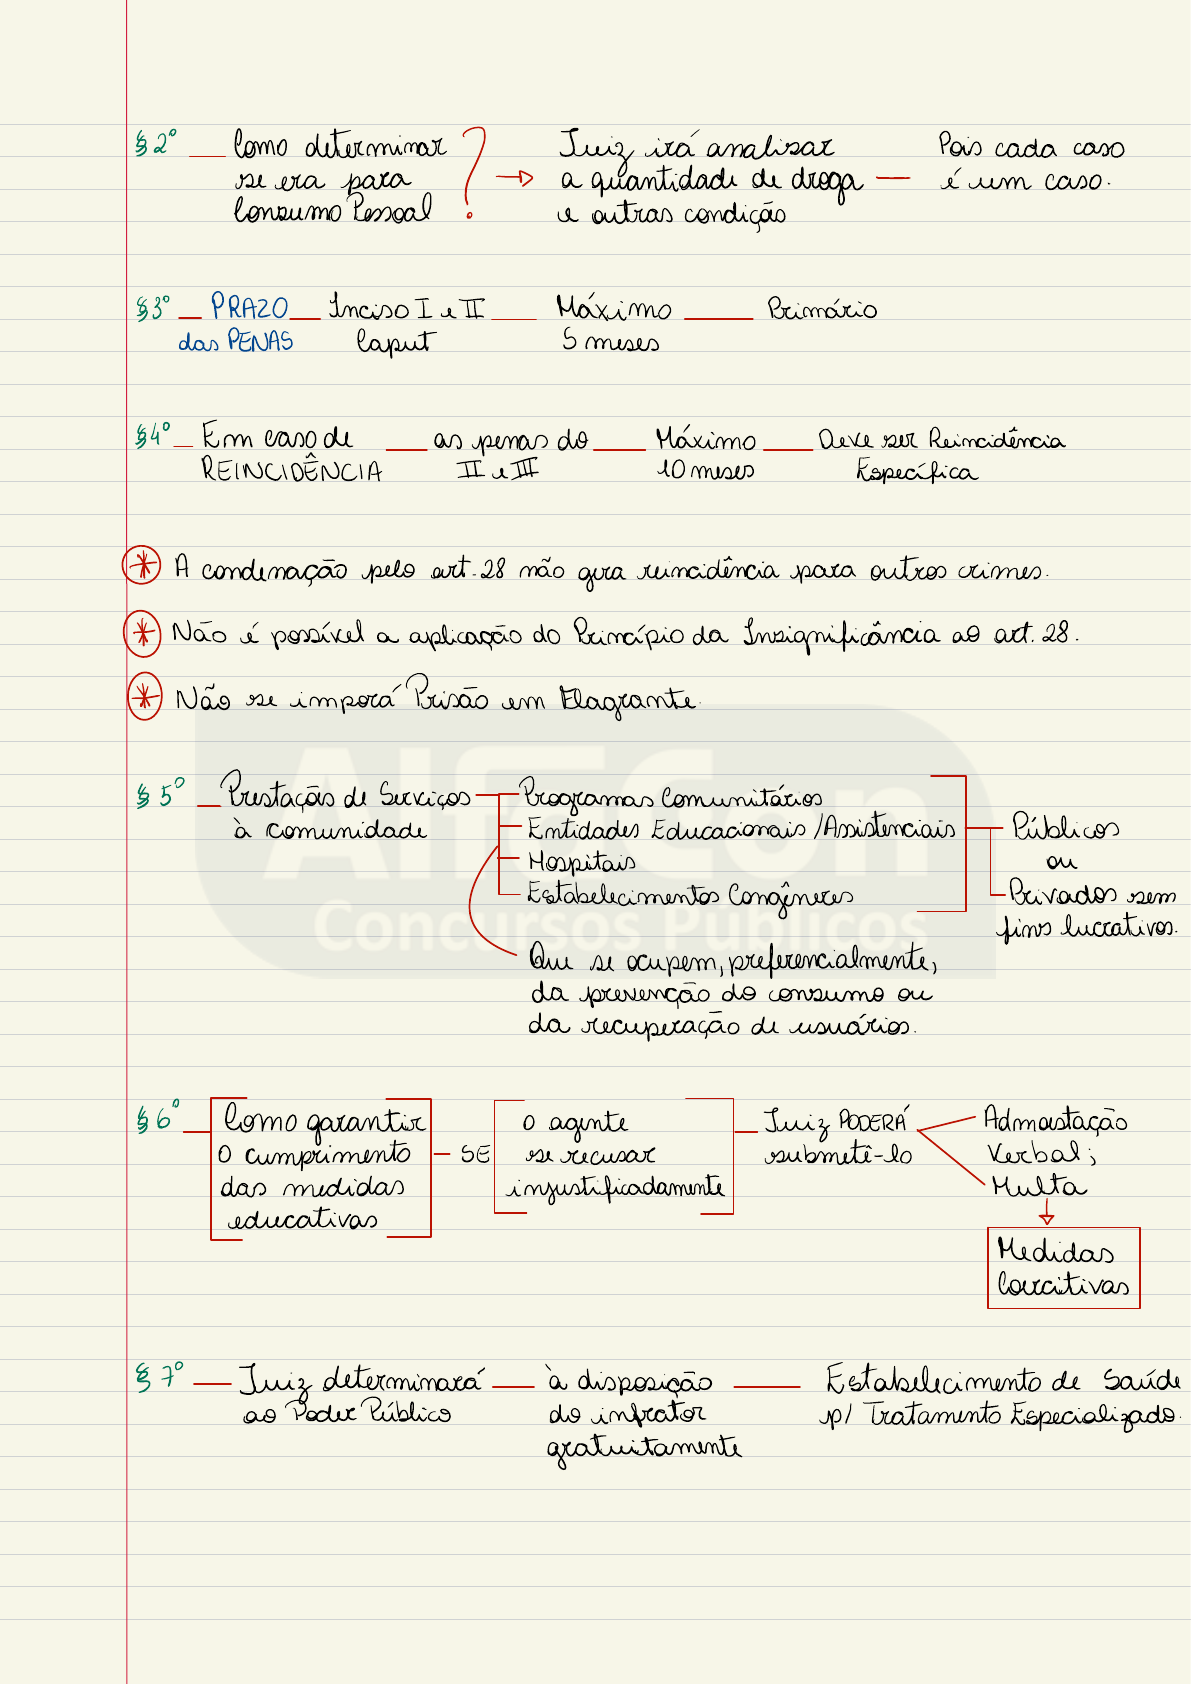 §2º — Como determinar ? → Juiz irá analisar — Pois cada caso
se era para a quantidade de droga é um caso.
Consumo Pessoal e outras condição
§3º — PRAZO — Inciso I e II — Máximo — Primário
das PENAS Caput 5 meses
§4º — Em caso de — as penas do — Máximo — Deve ser Reincidência
REINCIDÊNCIA II e III 10 meses Específica
* A condenação pelo art. 28 não gera reincidência para outros crimes.
* Não é possível a aplicação do Princípio da Insignificância ao art. 28.
* Não se imporá Prisão em Flagrante.
§ 5º — Prestação de Serviços — Programas Comunitários
à comunidade Entidades Educacionais / Assistenciais — Públicos
Hospitais ou
Estabelecimentos Congêneres Privados sem
fins lucrativos.
Que se ocupem, preferencialmente,
da prevenção do consumo ou
da recuperação de usuários.
AlfaCon
Concursos Públicos
§ 6º — Como garantir O agente — Juiz PODERÁ Admoestação
O cumprimento — SE se recusar submetê-lo Verbal;
das medidas injustificadamente Multa
educativas
Medidas
Coercitivas
§ 7º — Juiz determinará — à disposição — Estabelecimento de Saúde
ao Poder Público do infrator p/ Tratamento Especializado.
gratuitamente